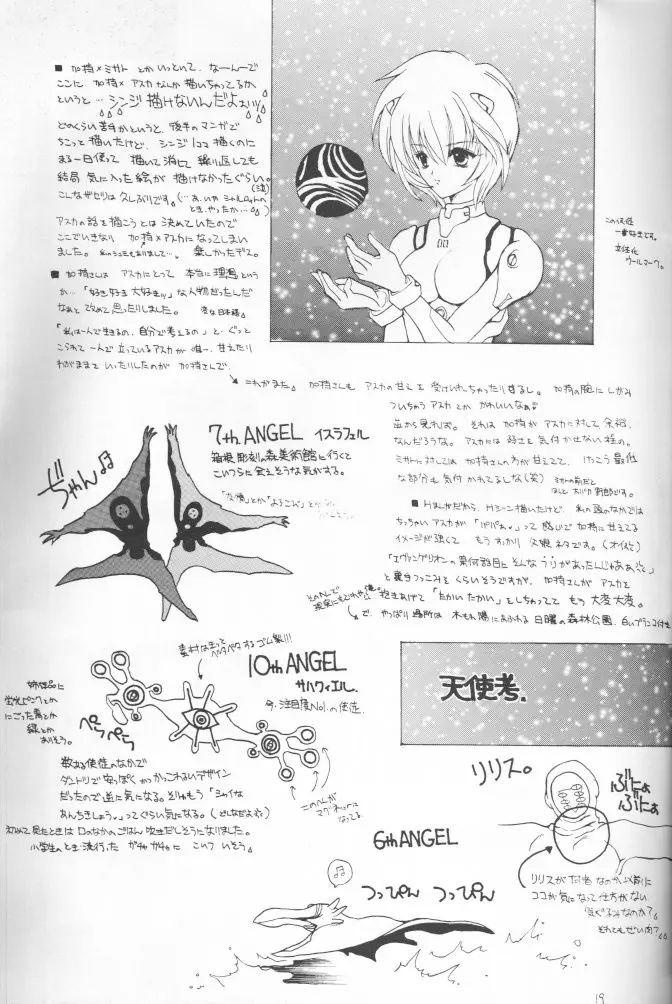 ■ 加持×ミサト とかいっといて、なーんーで
ここに 加持×アスカなんか描いちゃってるか
というと… シンジ描けないんだよぉぃッ
どのくらい苦手かというと、後半のマンガで
ちこっと描いたけど、シンジ1コマ描くのに
まる一日使って 描いて消して 繰り返しても
結局 気に入った絵が 描けなかったぐらい。(泣)
こんなザセツは久しぶりです。
アスカの話を描こうとは決めていたので
ここでいきなり 加持×アスカになってしまい
ました。 楽しかったデス。
■ 加持さんは アスカにとって 本当に理想という
か…「好き好き大好きッ」な人物だったんだ
なぁと改めて思ったりしました。 変な日本語
「私は一人で生きるの、自分で考えるの」と、ぐっと
こらえて一人で立っているアスカが唯一、甘えたり
わがままを いったりしたのが 加持さんで、
これがまた。 加持さんも アスカの甘えを 受けいれちゃったりするし。 加持の腕に しがみ
ついちゃう アスカとか かわいいなぁ
それは 加持が アスカに対して 余裕
なんだろうな。 アスカには 好きと 気付かせない
ミサトに対しては 加持さんの方が 甘えてて、けっこう最低
な部分も 気付かれてるしな(笑)
この使徒
一番好きです。
7th ANGEL イスラフェル
箱根彫刻の森美術館に行くと
こいつらに会えそうな気がする。
じゃん♫
■ Hまんがだから、Hシーン描いたけど、私の頭のなかでは
ちっちゃいアスカが「パパぁ」って感じで 加持に甘えてる
イメージが強くて もうすっかり 父娘ネタです。(オイ)
「エヴァンゲリオンの第何話目に そんなウリがあったんじゃぁぁ」
と裏手つっこみをくらいそうですが、加持さんが アスカを
抱きあげて「たかい たかい」をしちゃってて もう 大変大変。
で、やっぱり 場所は 木もれ陽にあふれる 日曜の森林公園、白いブランコ付き
素材はまって
ペタペタするゴム製!!!
10th ANGEL
サハクィエル.
今、注目度No.1の使徒
姉妹品に
蛍光ピンクとか
にごった青とか
緑とか
ありそう。
ぺら
ぺら
数ある使徒のなかで
ダントツで安っぽく かつ かっこわるいデザイン
だったので 逆に気になる。 そりゃもう「シャイな
あんちきしょう」ってぐらい気になる。
初めて見たときは 口のなかのごはん 吹きだしそうになりました。
小学生のとき流行った ガチャガチャに こいつ いそう
このへんが
マグネットに
なってる
天使考.
リリス。
ぶにょ
ぶにょ
リリスが何者なのか以前に
ココが気になって仕方がない
それともぜい肉?
6th ANGEL
つっぴん つっぴん
19